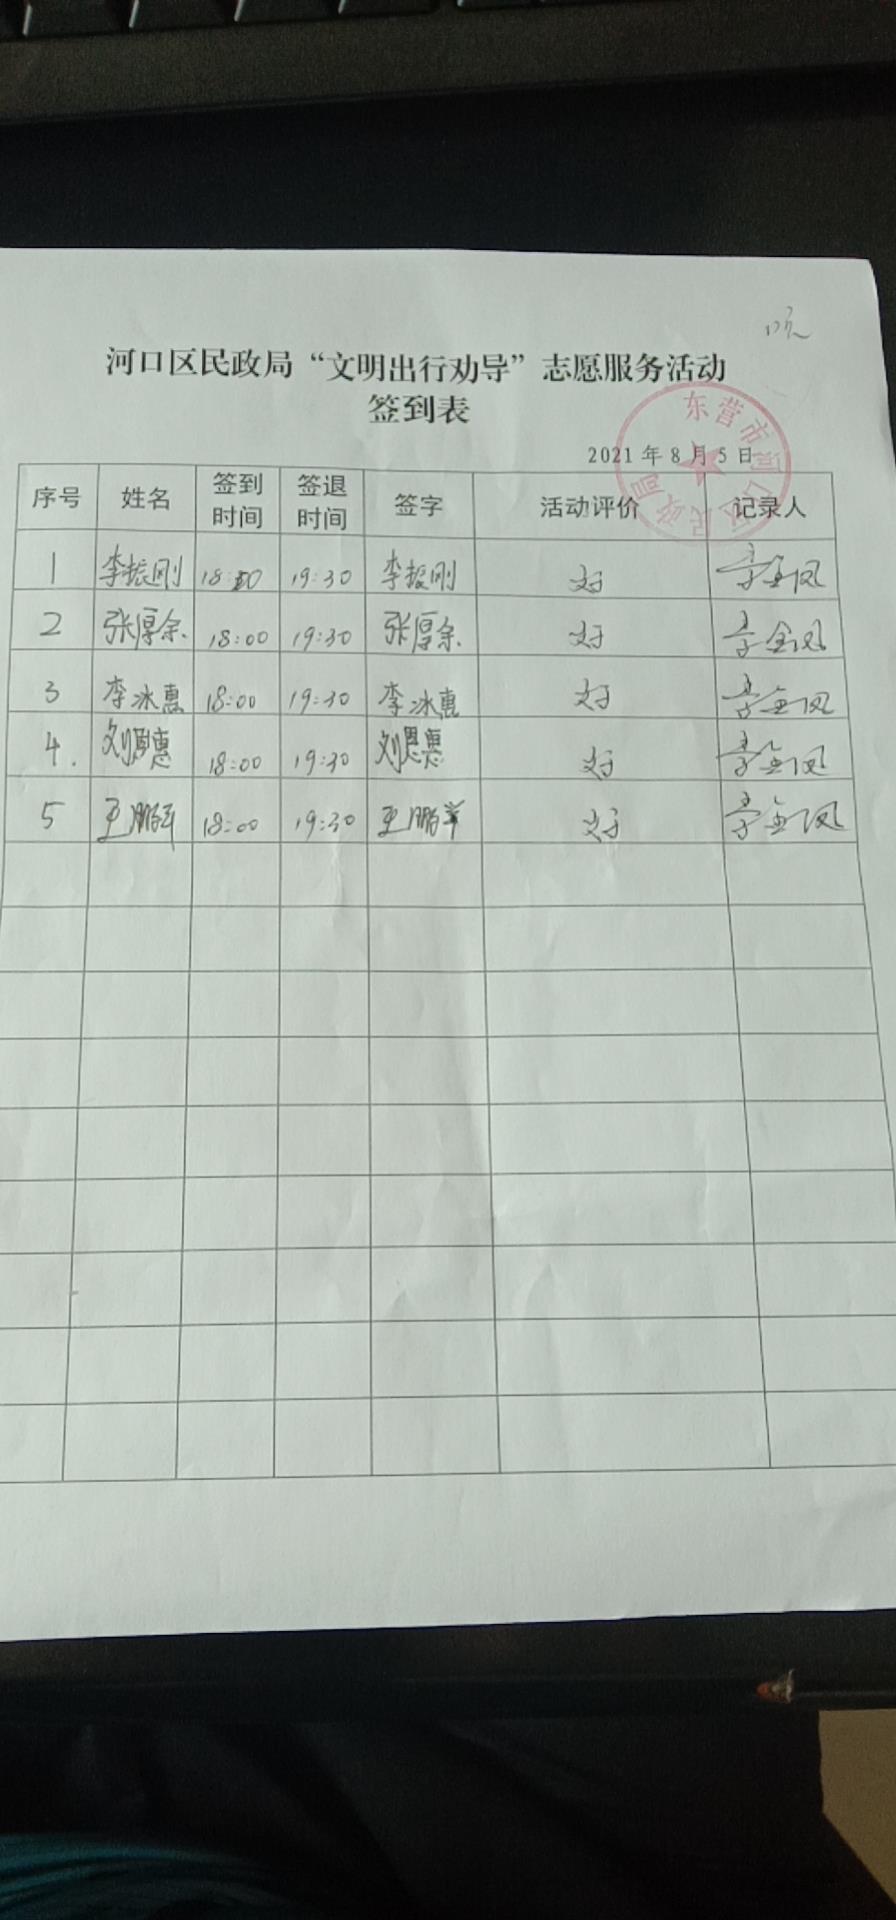 晚
河口区民政局“文明出行劝导”志愿服务活动
签到表
2021年8月5日
东营市河口区民政局
序号 姓名 签到时间 签退时间 签字 活动评价 记录人
1 李振刚 18:00 19:30 李振刚 好 李金凤
2 张厚余 18:00 19:30 张厚余 好 李金凤
3 李冰惠 18:00 19:30 李冰惠 好 李金凤
4. 刘恩惠 18:00 19:30 刘恩惠 好 李金凤
5 18:00 19:30 好 李金凤